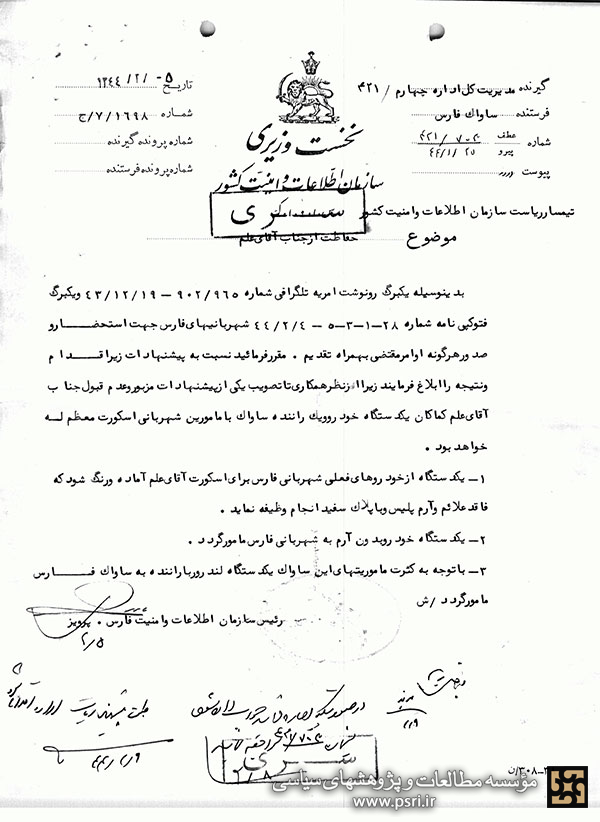 گیرنده مدیریت کل اداره چهارم / ۴۲۱
فرستنده ساواک فارس
شماره عطف پیرو ۴۲۱/۷۰۳ ۴۴/۱/۲۵
پیوست دارد
تاریخ ۵-/۲/۱۳۴۴
شماره ۷/۱۶۹۸/ج
شماره پرونده گیرنده
شماره پرونده فرستنده
نخست وزیری
سازمان اطلاعات و امنیت کشور
سری
تیمسار ریاست سازمان اطلاعات وامنیت کشور
موضوع حفاظت ازجناب آقای علم
بدینوسیله یکبرگ رونوشت امریه تلگرافی شماره ۹۰۲/۹۶۵ – ۴۳/۱۲/۱۹ ویکبرگ
فتوکپی نامه شماره ۲۸–۱–۳–۵ – ۴۴/۲/۴ شهربانیهای فارس جهت استحضار و
صدور هرگونه اوامر مقتضی بهمراه تقدیم . مقرر فرمائید نسبت به پیشنهادات زیر اقدام
ونتیجه را ابلاغ فرمایند زیرا از نظر همکاری تا تصویب یکی از پیشنهادات مزبور وعدم قبول جناب
آقای علم کماکان یکدستگاه خودرو ویک راننده ساواک با مامورین شهربانی اسکورت معظم له
خواهد بود .
۱– یکدستگاه ازخود روهای فعلی شهربانی فارس برای اسکورت آقای علم آماده ورنگ شود که
فاقد علائم وآرم پلیس وبا پلاک سفید انجام وظیفه نماید .
۲– یکدستگاه خود رو بدون آرم به شهربانی فارس مامور گردد .
۳– با توجه به کثرت ماموریتهای این ساواک یکدستگاه لند رور با راننده به ساواک فارس
مامور گردد /ش
رئیس سازمان اطلاعات وامنیت فارس . پرویز
۲/۵
۲/۹
۴۴/۲/۹
سری
۳۰۸/ن
مؤسسه مطالعات و پژوهشهای سیاسی
www.psri.ir